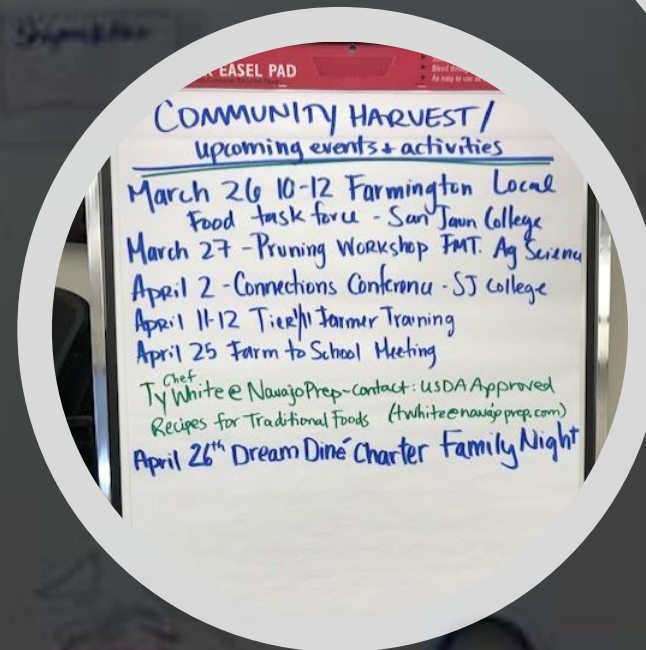 EASEL PAD
COMMUNITY HARVEST/
upcoming events + activities
March 26 10-12 Farmington Local
Food task force - San Jaun College
March 27 - Pruning Workshop FMT. Ag Science
April 2 - Connections Conference - SJ College
April 11-12 Tier II Farmer Training
April 25 Farm to School Meeting
Chef
Ty White @ NavajoPrep - contact: USDA Approved
Recipes for Traditional Foods (twhite@navajoprep.com)
April 26th Dream Diné Charter Family Night